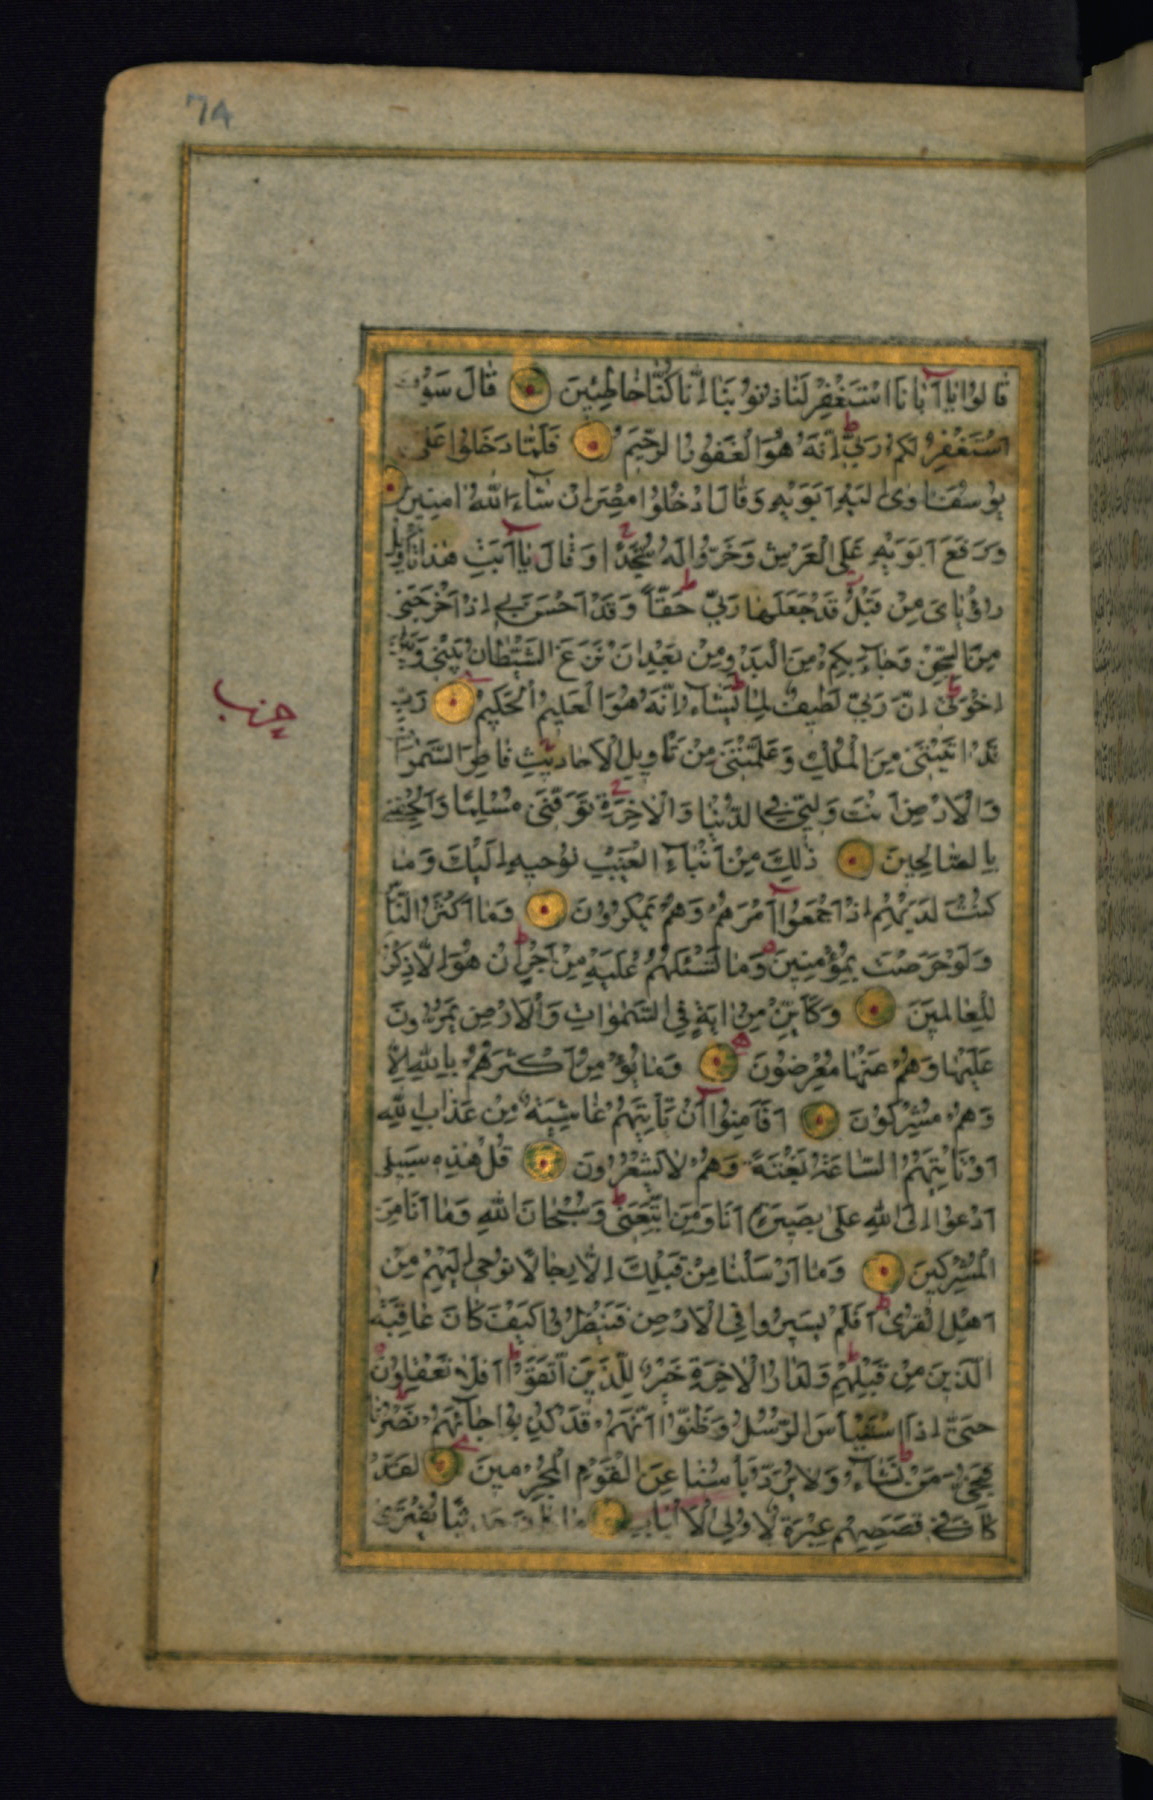 74
قالوا يا أبانا استغفر لنا ذنوبنا إنا كنا خاطئين قال سوف
أستغفر لكم ربي إنه هو الغفور الرحيم فلما دخلوا على
يوسف اوى إليه أبويه وقال ادخلوا مصر إن شاء الله امنين
ورفع أبويه على العرش وخروا له سجدا وقال يا أبت هذا تأويل
رؤياى من قبل قد جعلها ربي حقا وقد أحسن بي إذ أخرجني
من السجن وجاء بكم من البدو من بعد أن نزغ الشيطان بيني وبين
إخوتي إن ربي لطيف لما يشاء إنه هو العليم الحكيم رب
قد اتيتني من الملك وعلمتني من تأويل الأحاديث فاطر السموات
والأرض أنت وليي في الدنيا والآخرة توفني مسلما وألحقني
بالصالحين ذلك من أنباء الغيب نوحيه إليك وما
كنت لديهم إذ أجمعوا أمرهم وهم يمكرون وما أكثر الناس
ولو حرصت بمؤمنين وما تسئلهم عليه من أجر إن هو إلا ذكر
للعالمين وكأين من اية في السموات والأرض يمرون
عليها وهم عنها معرضون وما يؤمن أكثرهم بالله إلا
وهم مشركون أفأمنوا أن تأتيهم غاشية من عذاب الله
أو تأتيهم الساعة بغتة وهم لا يشعرون قل هذه سبيلي
أدعوا إلى الله على بصيرة أنا ومن اتبعني وسبحان الله وما أنا من
المشركين وما أرسلنا من قبلك إلا رجالا نوحي إليهم من
أهل القرى أفلم يسيروا في الأرض فينظروا كيف كان عاقبة
الذين من قبلهم ولدار الآخرة خير للذين اتقوا أفلا تعقلون
حتى إذا استيأس الرسل وظنوا أنهم قد كذبوا جاءهم نصرنا
فنجي من نشاء ولا يرد بأسنا عن القوم المجرمين لقد
كان في قصصهم عبرة لأولي الألباب ما كان حديثا يفترى